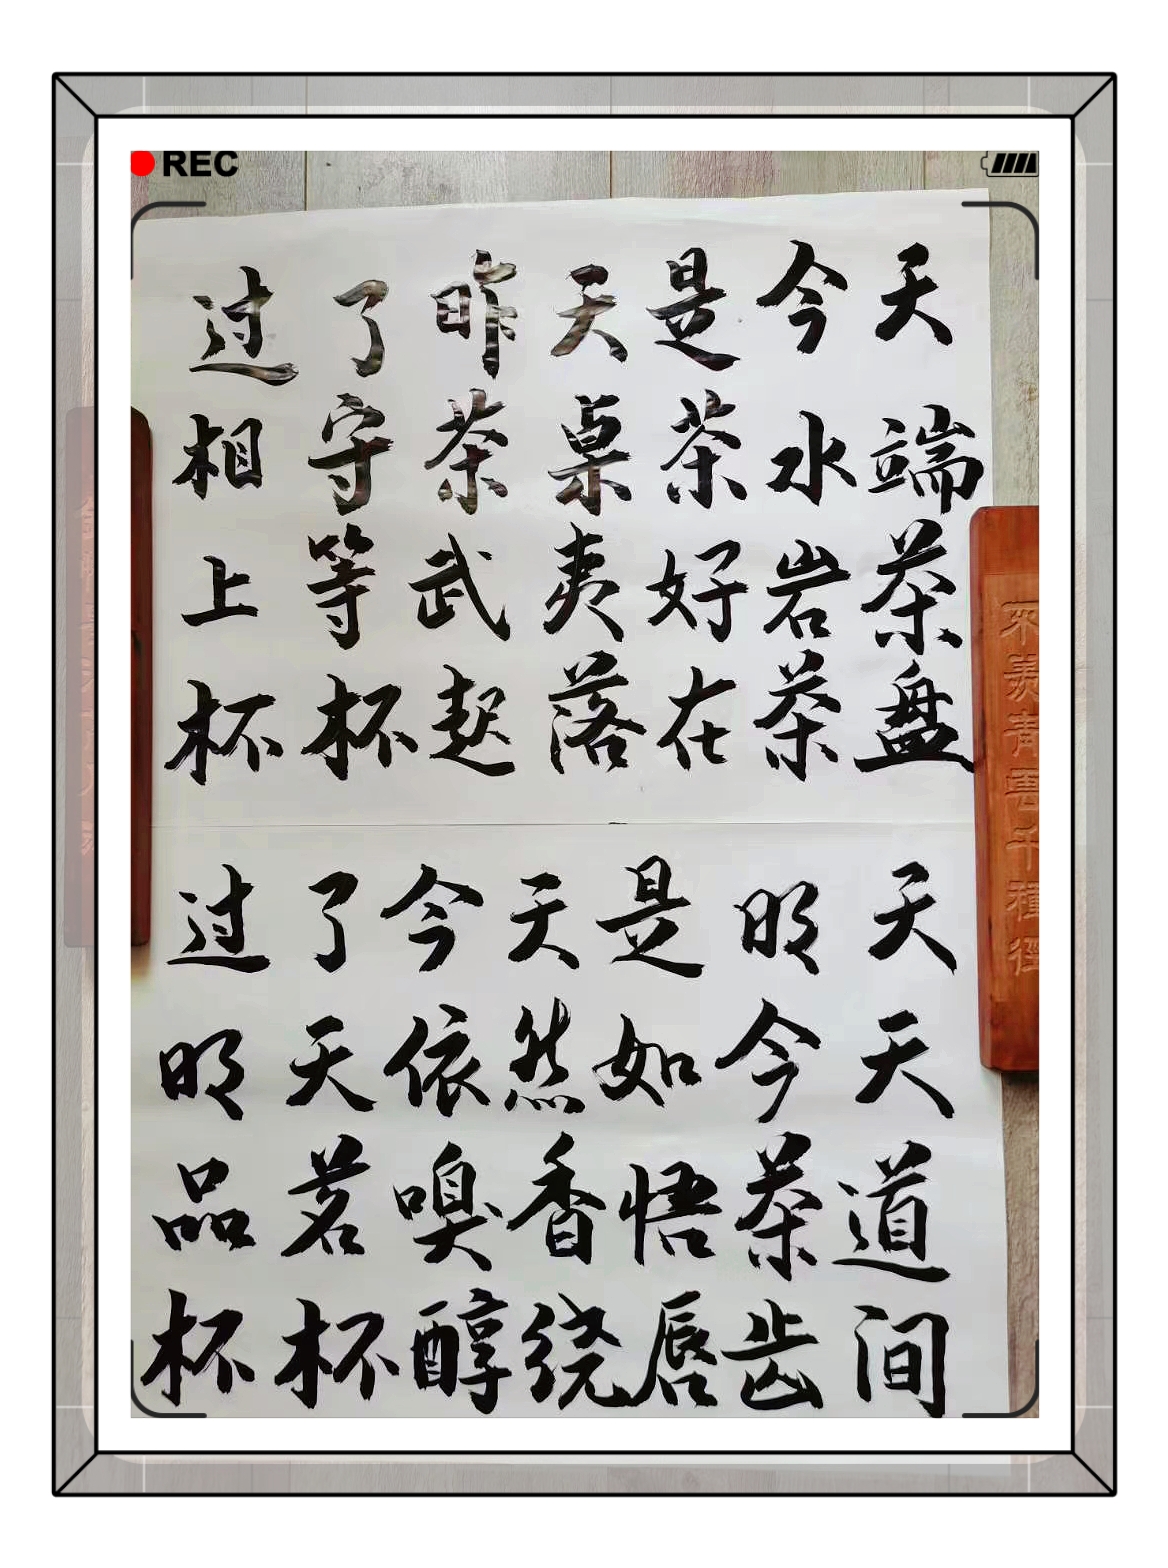 REC
过了昨天是今天
相守茶桌茶水端
上等武夷好岩茶
杯杯起落在茶盘
过了今天是明天
明天依然如今天
品茗嗅香悟茶道
杯杯醇绕唇齿间